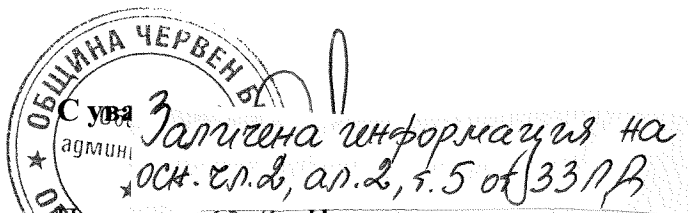 ОБЩИНА ЧЕРВЕН Б
С ува
админ
Заличена информация на
осн. чл.2, ал.2, т.5 от ЗЗЛД